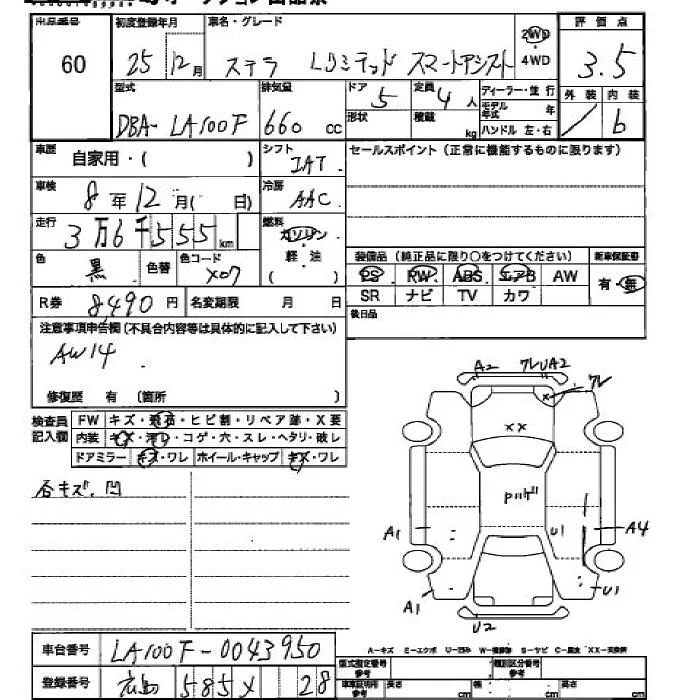 出品番号 初度登録年月 車名・グレード 2WD・4WD 評価点
60 25年12月 ステラ Lリミテッド スマートアシスト 3.5
型式 排気量 ドア 5 定員 4人 ディーラー・並行 外装 内装
DBA- LA100F 660cc 形状 積載 kg モデル年式 年 / b
ハンドル 左・右
車歴 自家用・( ) シフト IAT セールスポイント(正常に機能するものに限ります)
車検 8年12月( 日) 冷房 AAC
走行 3万6千555km 燃料 ガソリン・軽油 ( )
色 黒 色替 色コード X07
装備品(純正品に限り○をつけてください) 新車保証書
PS RW ABS エアB AW 有・無
SR ナビ TV カワ
R券 8490円 名変期限 月 日 後日品
注意事項申告欄(不具合内容等は具体的に記入して下さい)
AW14
修復歴 有 〔箇所 〕
検査員記入欄 FW キズ・飛石・ヒビ割・リペア跡・X要
内装 キズ・汚レ・コゲ・穴・スレ・ヘタリ・破レ
ドアミラー キズ・ワレ ホイール・キャップ キズ・ワレ
各キズ、凹
A2 ワレUA2
ワレ
×
××
Pハゲ
A1 U1 A4
A1 U1
U2
A-キズ E-エクボ U-凹み W-補修跡 S-サビ C-腐食 XX-交換済
車台番号 LA100F-0043950
登録番号 広島 585 X 28
型式指定番号 類別区分番号
車車証明用参考 長さ cm 幅 cm 高さ cm